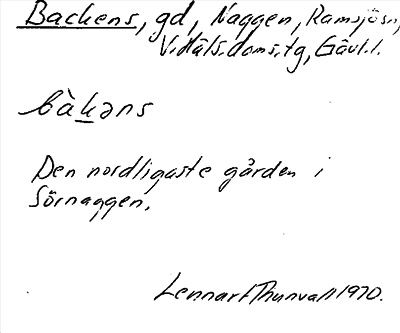 Backens, gd, Naggen, Ramsjösn,
V. Häls. doms.tg, Gävl.l.
bàkəns
Den nordligaste gården i
Sörnaggen.
Lennart Thunvall 1970.